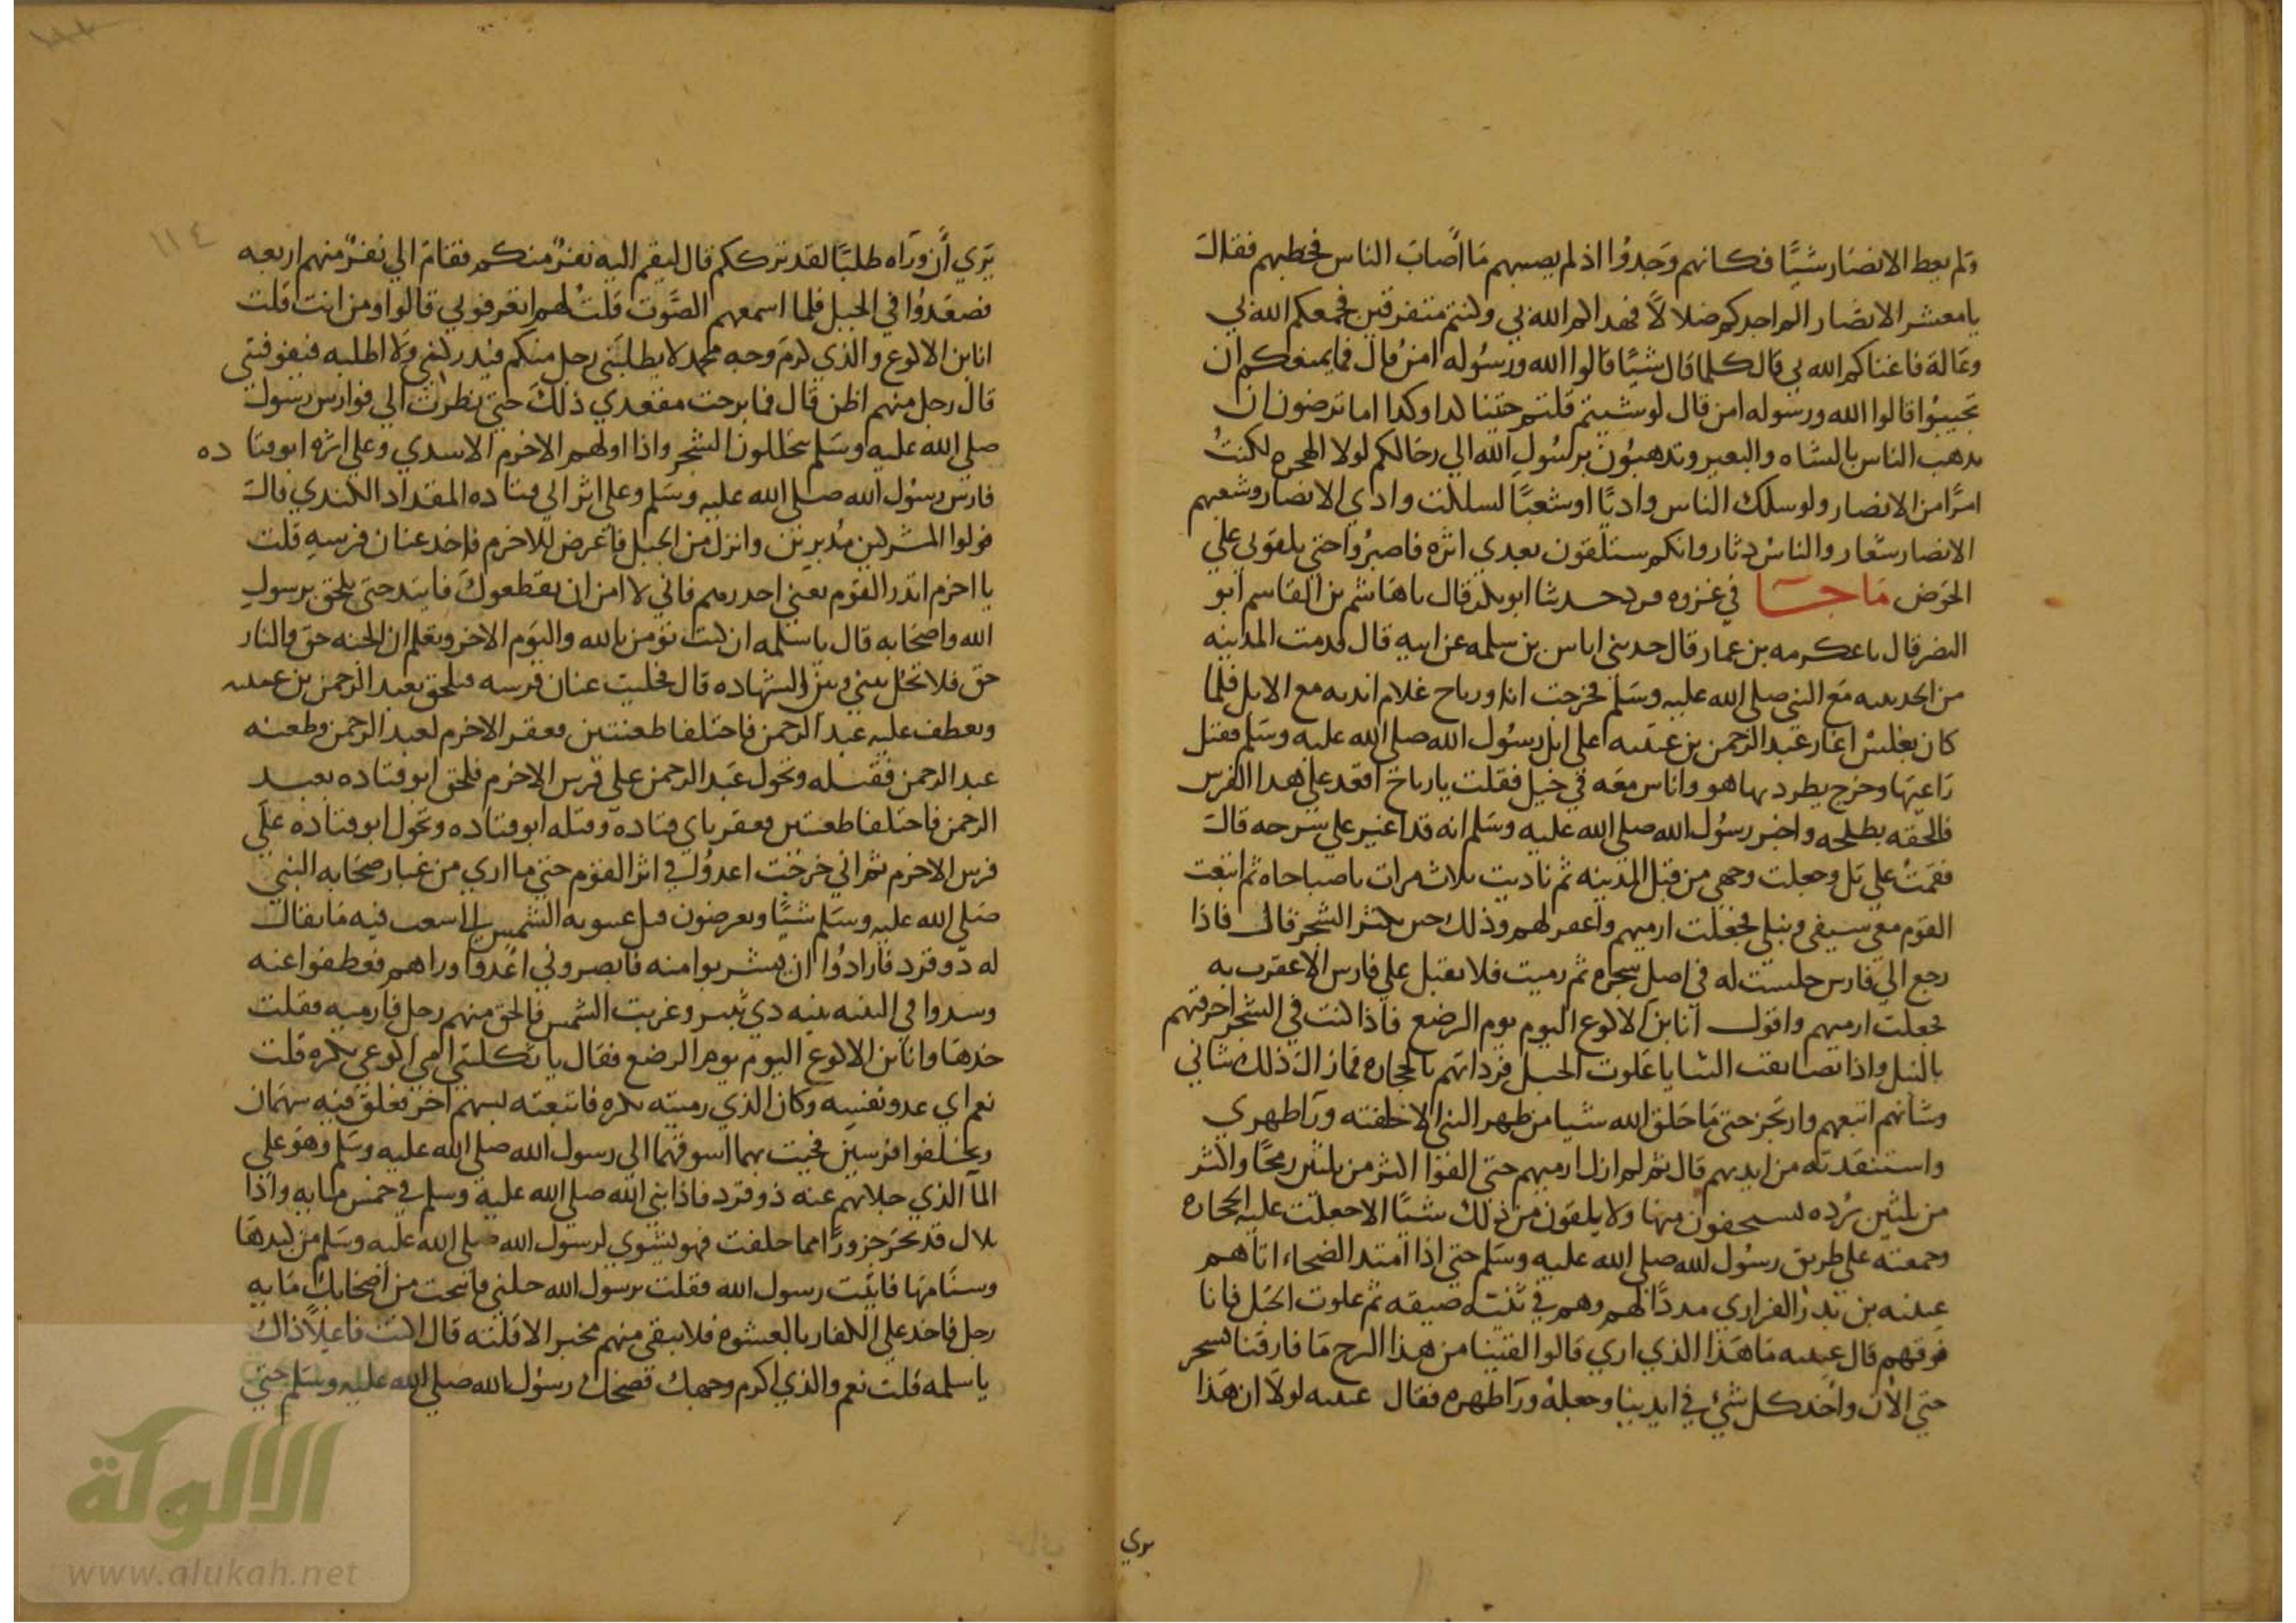 ولم يعط الانصار شيًا فكانهم وجدوا اذ لم يصبهم ما اصاب الناس فخطبهم فقال
يا معشر الانصار الم اجدكم ضلالا فهداكم الله بي وكنتم متفرقين فجمعكم الله بي
وعالة فاغناكم الله بي قال كلما قال شيًا قالوا الله ورسوله امن قال فما يمنعكم ان
تجيبوا قالوا الله ورسوله امن قال لو شيتم قلتم جيتنا كدا وكدا اما ترضون ان
يدهب الناس بالشاه والبعير وتدهبون برسول الله الي رحالكم لولا الهجره لكنت
امرًا من الانصار ولو سلك الناس واديًا او شعبًا لسلكت وادي الانصار وشعبهم
الانصار شعار والناس دثار وانكم ستلقون بعدي اثره فاصبروا حتي تلقوني علي
الحوض ما جا في غزوه قرد حدثنا ابو بكر قال نا هاشم بن القاسم ابو
النضر قال نا عكرمه بن عمار قال حدثني اياس بن سلمه عن ابيه قال قدمت المدينه
من الحديبيه مع النبي صلى الله عليه وسلم فخرجت انا ورباح غلام انديه مع الابل فلما
كان بغلس اغار عبد الرحمن بن عيينه على ابل رسول الله صلى الله عليه وسلم فقتل
راعيها وخرج يطردبها هو واناس معه في خيل فقلت يا رباح اقعد على هدا الفرس
فالحقه بطلحه واخبر رسول الله صلى الله عليه وسلم انه قد اغير علي سرحه قال
فقمت علي تل وجعلت وجهي من قبل المدينه ثم ناديت ثلاث مرات يا صباحاه ثم اتبعت
القوم معي سيفي ونبلي فجعلت ارميهم واعقر لهم وذلك حين يكثر الشجر قال فاذا
رجع الي فارس جلست له في اصل شجره ثم رميت فلا يقبل علي فارس الا عقرت به
فجعلت ارميهم واقول انا بن الاكوع اليوم يوم الرضع فاذا كنت في الشجر احرقتهم
بالنبل واذا تضايقت الثنايا علوت الجبل فرداتهم بالحجاره فما زال ذلك شاني
وشانهم اتبعهم وارتجز حتى ما خلق الله شيا من ظهر النبي الا خلفته ورا ظهري
واستنقدته من ايديهم قال ثم لم ازل ارميهم حتى القوا اكثر من ثلثين رمحًا واكثر
من ثلثين برده يستخفون منها ولا يلقون من ذلك شيًا الا جعلت عليه الحجاره
وجمعته علي طريق رسول الله صلى الله عليه وسلم حتي اذا امتد الضحاء اتاهم
عيينه بن بدر الفزاري مددًا لهم وهم في ثنيه ضيقه ثم علوت الجبل فانا
فوقهم قال عيينه ما هذا الذي اري قالوا لقينا من هذا البرح ما فارقنا بسحر
حتي الان واخذ كل شي في ايدينا وجعله ورا ظهره فقال عيينه لولا ان هذا
يري
١١٤
يري ان وراه طلبًا لقد ترككم قال ليقم اليه نفر منكم فقام الي نفر منهم اربعه
فصعدوا في الجبل فلما اسمعهم الصوت قلت لهم اتعرفوني قالوا ومن انت قلت
انا بن الاكوع والذي كرم وجه محمد لا يطلبني رجل منكم فيدركني ولا اطلبه فيفوتني
قال رجل منهم اظن قال فما برحت مقعدي ذلك حتى نظرت الي فوارس رسول
صلى الله عليه وسلم يتخللون الشجر واذا اولهم الاخرم الاسدي وعلي اثره ابو قتاده
فارس رسول الله صلى الله عليه وسلم وعلى اثر ابي قتاده المقداد الكندي قال
فولوا المشركين مدبرين وانزل من الجبل فاعرض للاخرم فاخد عنان فرسه قلت
يا اخرم اندر القوم يعني احدرهم فاني لا امن ان يقطعوك فايتد حتى يلحق برسول
الله واصحابه قال يا سلمه ان كنت تومن بالله واليوم الاخر وتعلم ان الجنه حق والنار
حق فلا تحل بيني وبين الشهاده قال فخليت عنان فرسه فيلحق بعبد الرحمن بن عيينه
ويعطف عليه عبد الرحمن فاختلفا طعنتين فعقر الاخرم لعبد الرحمن وطعنه
عبد الرحمن فقتله وتحول عبد الرحمن علي فرس الاخرم فلحق ابو قتاده بعبد
الرحمن فاختلفا طعنتين فعقر باي قتاده وقتله ابو قتاده وتحول ابو قتاده علي
فرس الاخرم ثم اني خرجت اعدو في اثر القوم حتي ما اري من غبار صحابه النبي
صلى الله عليه وسلم شيًا ويعرضون قبل غيبوبه الشمس الي شعب فيه ما يقال
له ذو قرد فارادوا ان يشربوا منه فابصروني اعدوا وراهم فعطفوا عنه
وسدوا في الثنيه ثنيه دي ثبير وغربت الشمس فالحق منهم رجل فارميه فقلت
خدها وانا بن الاكوع اليوم يوم الرضع فقال يا ثكلتني امي اكوعي بكره قلت
نعم اي عدو نفسه وكان الذي رميته بكره فاتبعته بسهم اخر فعلق فيه سهمان
وتخلفوا فرسين فجيت بهما اسوقهما الى رسول الله صلى الله عليه وسلم وهو على
الما الذي جلاتهم عنه ذو قرد فاذا نبي الله صلى الله عليه وسلم في خمس مايه واذا
بلال قد نحر جزورًا مما خلفت فهو يشوي لرسول الله صلى الله عليه وسلم من كبدها
وسنامها فاتيت رسول الله فقلت يرسول الله خلني فانتخب من اصحابك مايه
رجل فاخد علي الكفار بالعشوه فلا يبقى منهم مخبر الا قتلته قال اكنت فاعلًا ذاك
يا سلمه قلت نعم والذي اكرم وجهك فضحك رسول الله صلى الله عليه وسلم حتي
الألوكة
www.alukah.net